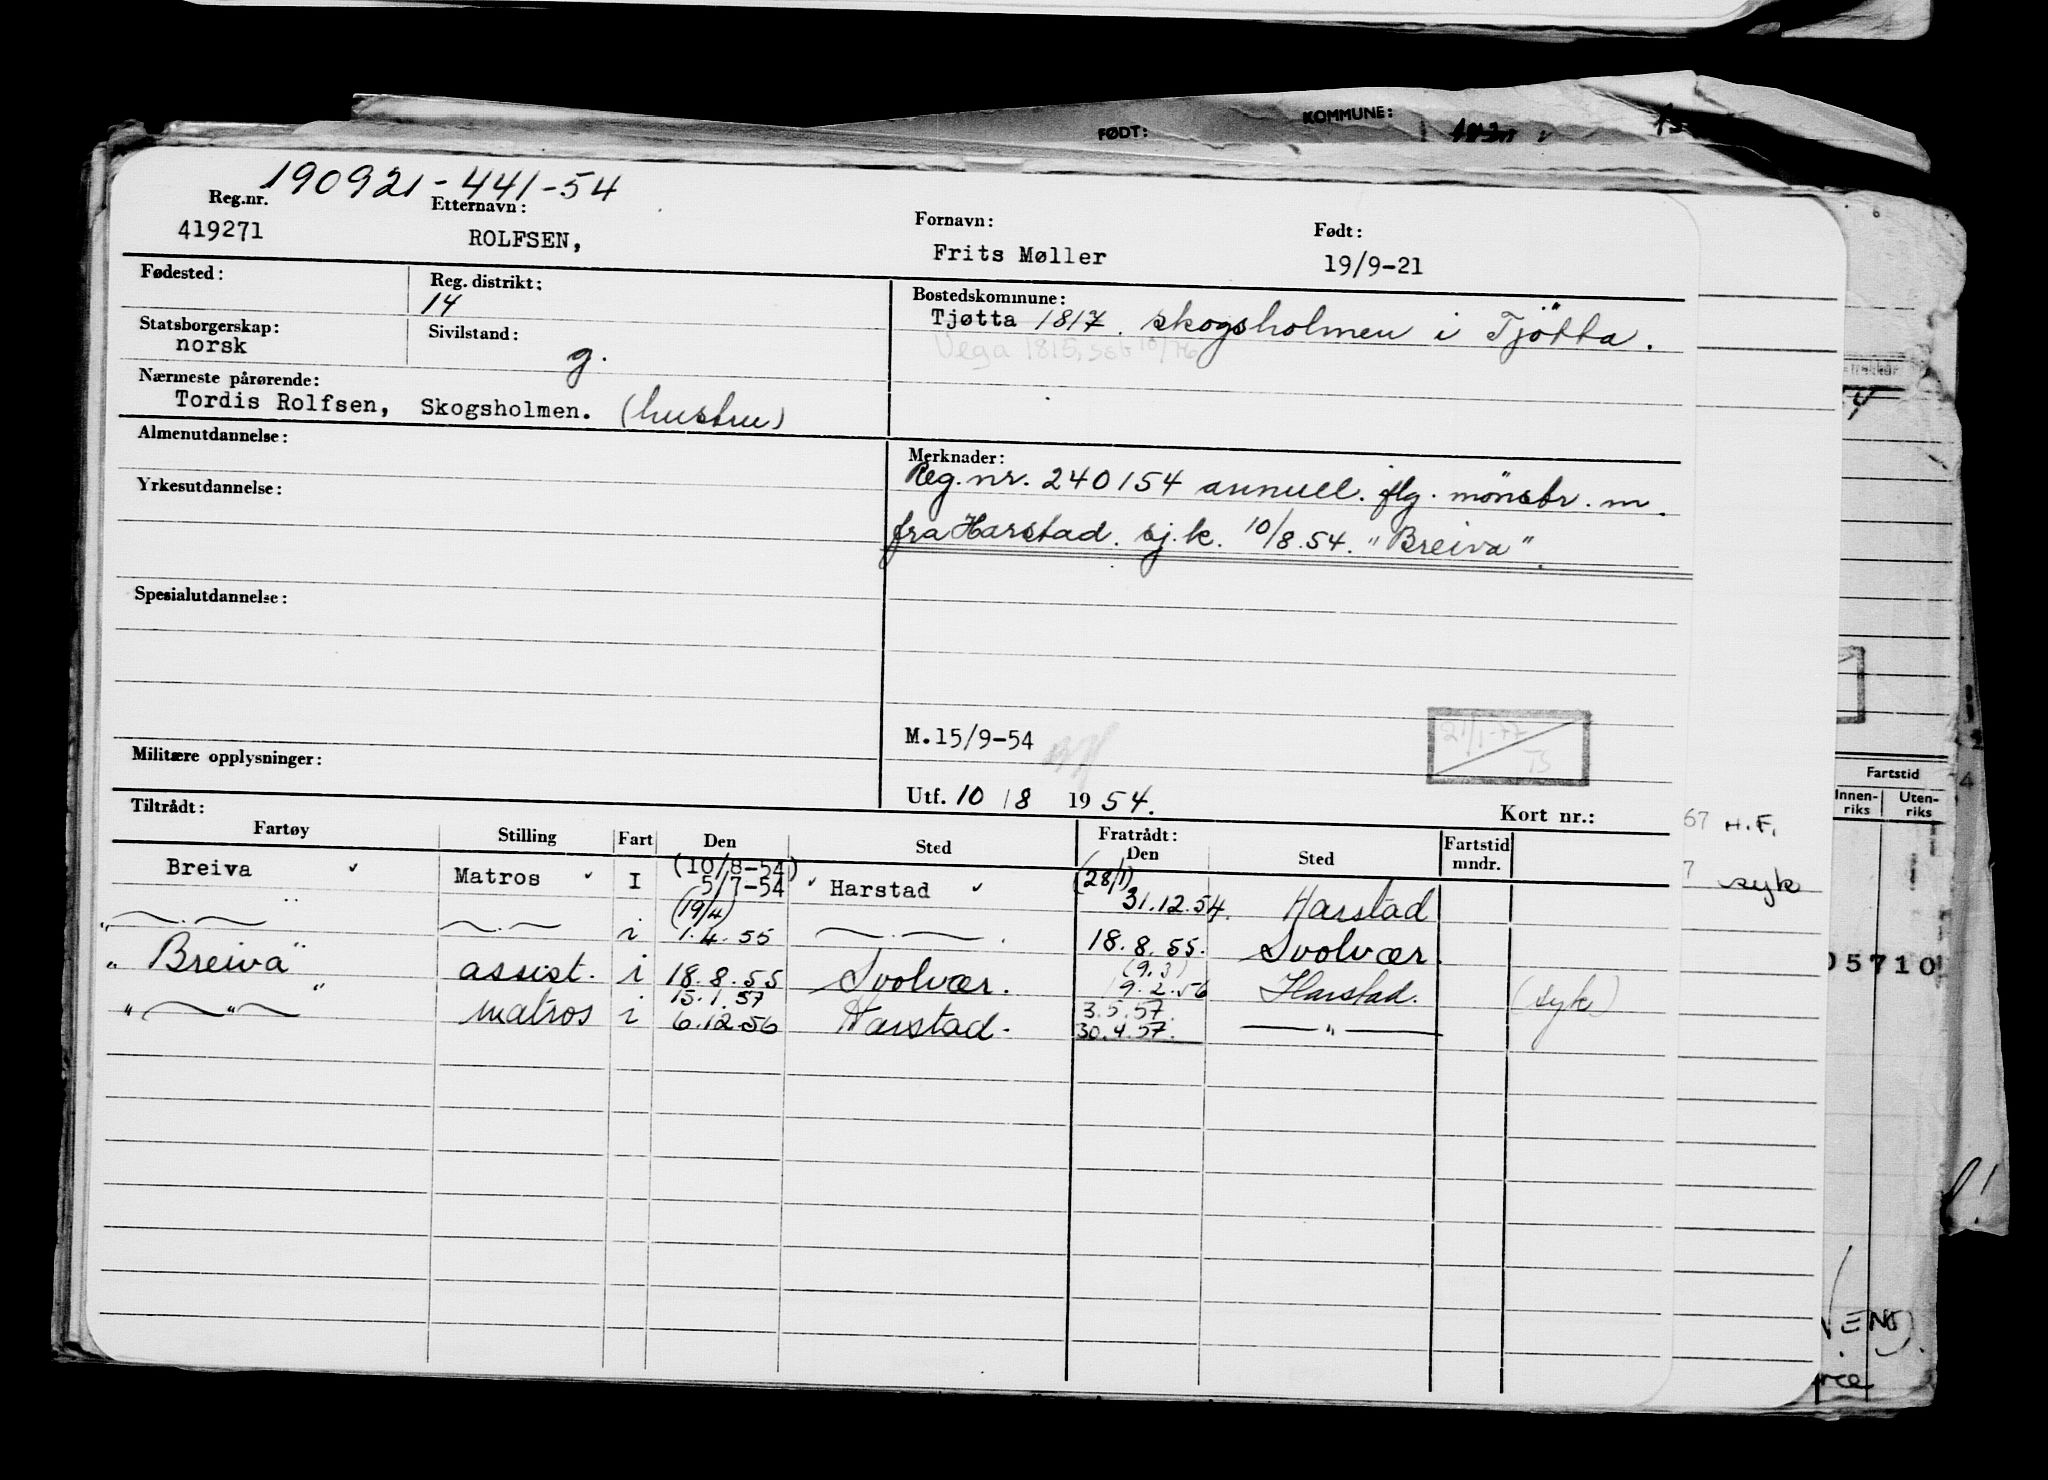 FØDT: KOMMUNE:
190921-441-54
Reg.nr. Etternavn: Fornavn: Født:
419271 ROLFSEN, Frits Møller 19/9-21
Fødested: Reg. distrikt: Bostedskommune:
14 Tjøtta 1817. Skogsholmen i Tjötta.
Statsborgerskap: Sivilstand: Vega 1815, ssb 10/76
norsk g.
Nærmeste pårørende:
Tordis Rolfsen, Skogsholmen. (hustru)
Almenutdannelse: Merknader:
Reg.nr. 240154 annull. flg. mönstr. m.
Yrkesutdannelse:
fra Harstad. sj.k. 10/8.54. "Breiva".
Spesialutdannelse:
M.15/9-54 21/1-77 TS
Militære opplysninger:
Utf. 10/8 1954. Kort nr.:
Tiltrådt: Fratrådt:
Fartøy Stilling Fart Den Sted Den Sted Fartstid mndr.
Breiva Matros I (10/8-54) 5/7-54 Harstad (28/1) 31.12.54. Harstad
" — . — " — . — i (19/4) 1.4.55 — . — . 18.8.55. Svolvær.
"Breiva" assist. i 18.8.55 Svolvær. (9.3) 19.2.56 Harstad. (syk)
" — " — " matros i 15.1.57 6.12.56 Harstad. 3.5.57. 30.4.57. — " —
67 H.F.
7 syk
Fartstid
Innen-riks Uten-riks
05710